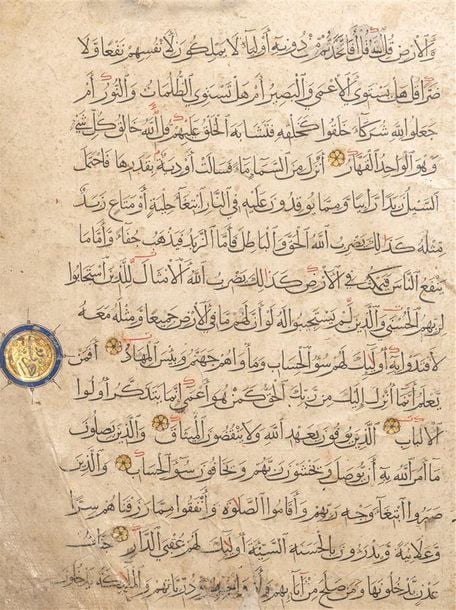 والأرض قل الله قل أفاتخذتم من دونه أولياء لا يملكون لأنفسهم نفعا ولا
ضرا قل هل يستوي الأعمى والبصير أم هل تستوي الظلمات والنور أم
جعلوا لله شركاء خلقوا كخلقه فتشابه الخلق عليهم قل الله خالق كل شيء
وهو الواحد القهار أنزل من السماء ماء فسالت أودية بقدرها فاحتمل
السيل زبدا رابيا ومما يوقدون عليه في النار ابتغاء حلية أو متاع زبد
مثله كذلك يضرب الله الحق والباطل فأما الزبد فيذهب جفاء وأما ما
ينفع الناس فيمكث في الأرض كذلك يضرب الله الأمثال للذين استجابوا
لربهم الحسنى والذين لم يستجيبوا له لو أن لهم ما في الأرض جميعا ومثله معه
لافتدوا به أولئك لهم سوء الحساب ومأواهم جهنم وبئس المهاد أفمن
يعلم أنما أنزل إليك من ربك الحق كمن هو أعمى إنما يتذكر أولوا
الألباب الذين يوفون بعهد الله ولا ينقضون الميثاق والذين يصلون
ما أمر الله به أن يوصل ويخشون ربهم ويخافون سوء الحساب والذين
صبروا ابتغاء وجه ربهم وأقاموا الصلوة وأنفقوا مما رزقناهم سرا
وعلانية ويدرءون بالحسنة السيئة أولئك لهم عقبى الدار جنات
عدن يدخلونها ومن صلح من آبائهم وأزواجهم وذرياتهم والملائكة يدخلون